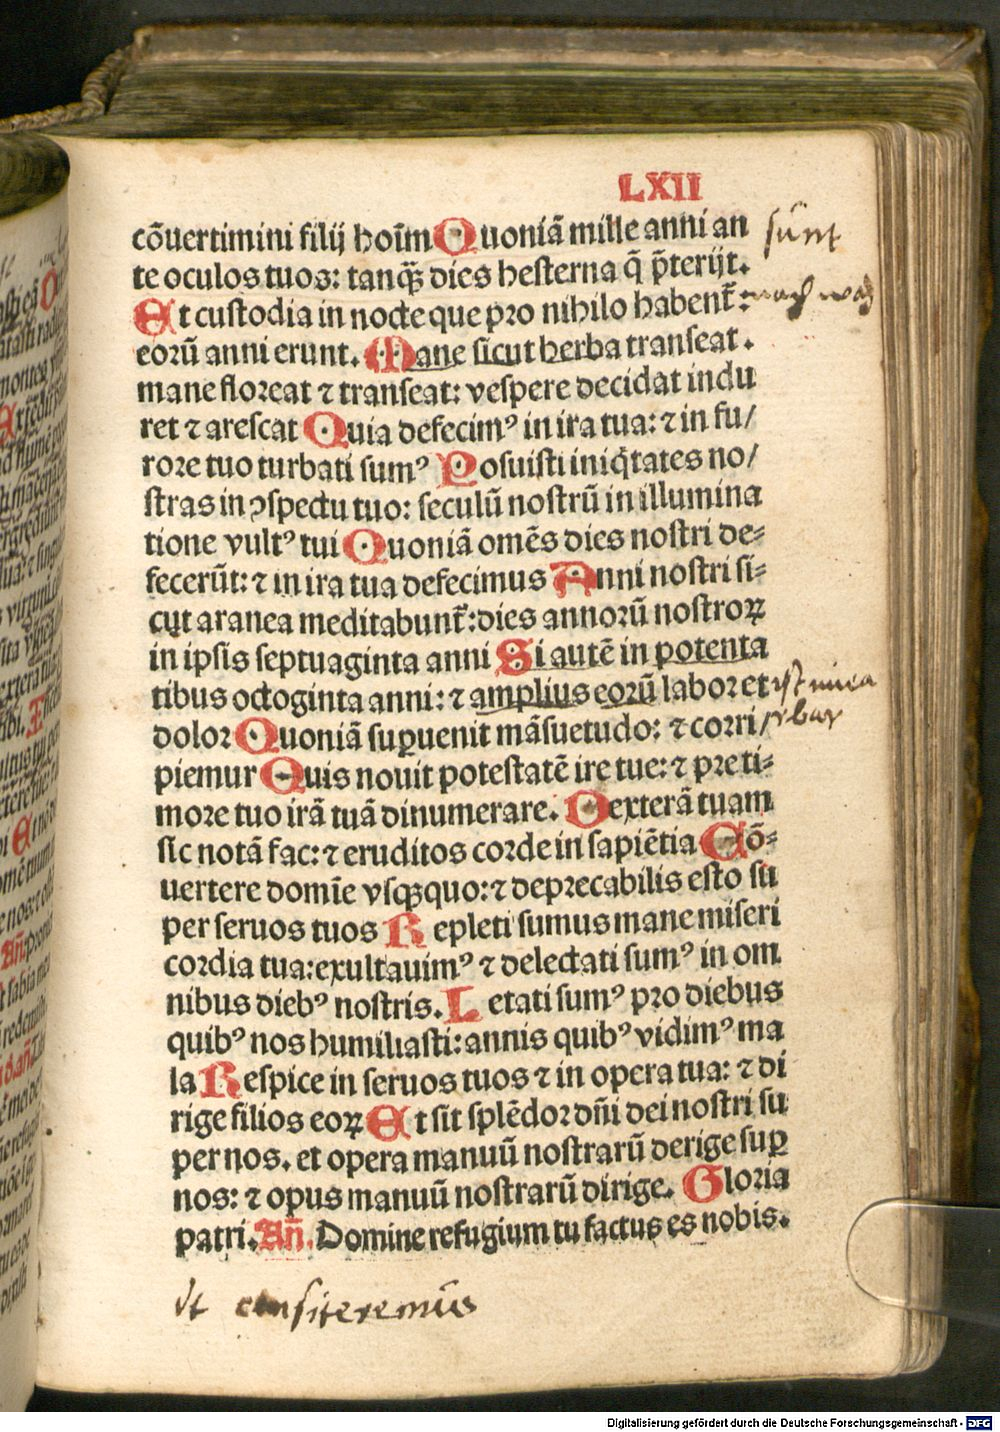 LXII
cōuertimini filij hoīm Quoniā mille anni an
te oculos tuos: tanqȝ dies hesterna q̄ p̄terijt.
Et custodia in nocte que pro nihilo habent᷑:
eorū anni erunt. Mane sicut herba transeat.
mane floreat ⁊ transeat: vespere decidat indu
ret ⁊ arescat Quia defecimꝰ in ira tua: ⁊ in fu/
rore tuo turbati sumꝰ Posuisti iniq̄tates no/
stras in ↄspectu tuo: seculū nostrū in illumina
tione vultꝰ tui Quoniā omēs dies nostri de-
fecerūt: ⁊ in ira tua defecimus Anni nostri si-
cut aranea meditabunt᷑: dies annorū nostroꝝ
in ipsis septuaginta anni Si autē in potenta
tibus octoginta anni: ⁊ amplius eorū labor et
dolor Quoniā suꝑuenit māsuetudo: ⁊ corri/
piemur Quis nouit potestatē ire tue: ⁊ pre ti-
more tuo irā tuā dinumerare. Dexterā tuam
sic notā fac: ⁊ eruditos corde in sapiētia Cō-
uertere domīe vsqȝquo: ⁊ deprecabilis esto su
per seruos tuos Repleti sumus mane miseri
cordia tua: exultauimꝰ ⁊ delectati sumꝰ in om
nibus diebꝰ nostris. Letati sumꝰ pro diebus
quibꝰ nos humiliasti: annis quibꝰ vidimꝰ ma
la Respice in seruos tuos ⁊ in opera tua: ⁊ di
rige filios eoꝝ Et sit splēdor dn̄i dei nostri su
per nos. et opera manuū nostrarū derige suꝑ
nos: ⁊ opus manuū nostrarū dirige. Gloria
patri. An̄. Domine refugium tu factus es nobis.
sunt